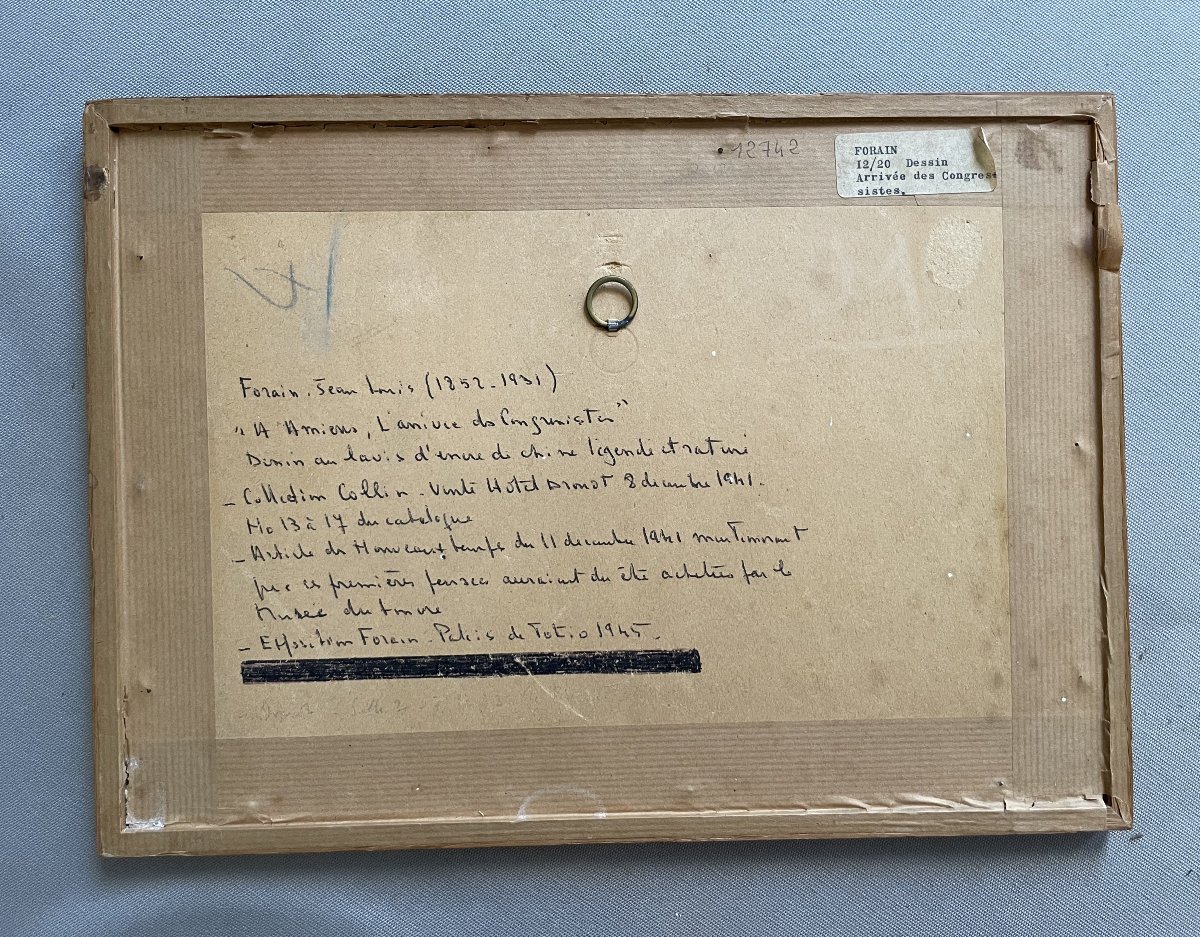 12742
FORAIN
12/20 Dessin
Arrivée des Congres-
sistes.
Forain. Jean Louis (1852-1931)
"A Amiens, L'arrivée des Congressistes"
Dessin au lavis d'encre de chine légendé et raturé
- Collection Collin - Vente Hôtel Drouot 8 decembre 1941.
No 13 à 17 du catalogue
- Article des Nouveaux temps du 11 decembre 1941 mentionnant
que ces premières pensées auraient du être achetées par le
Musée du Louvre
- Exposition Forain - Palais de Tokio 1945.